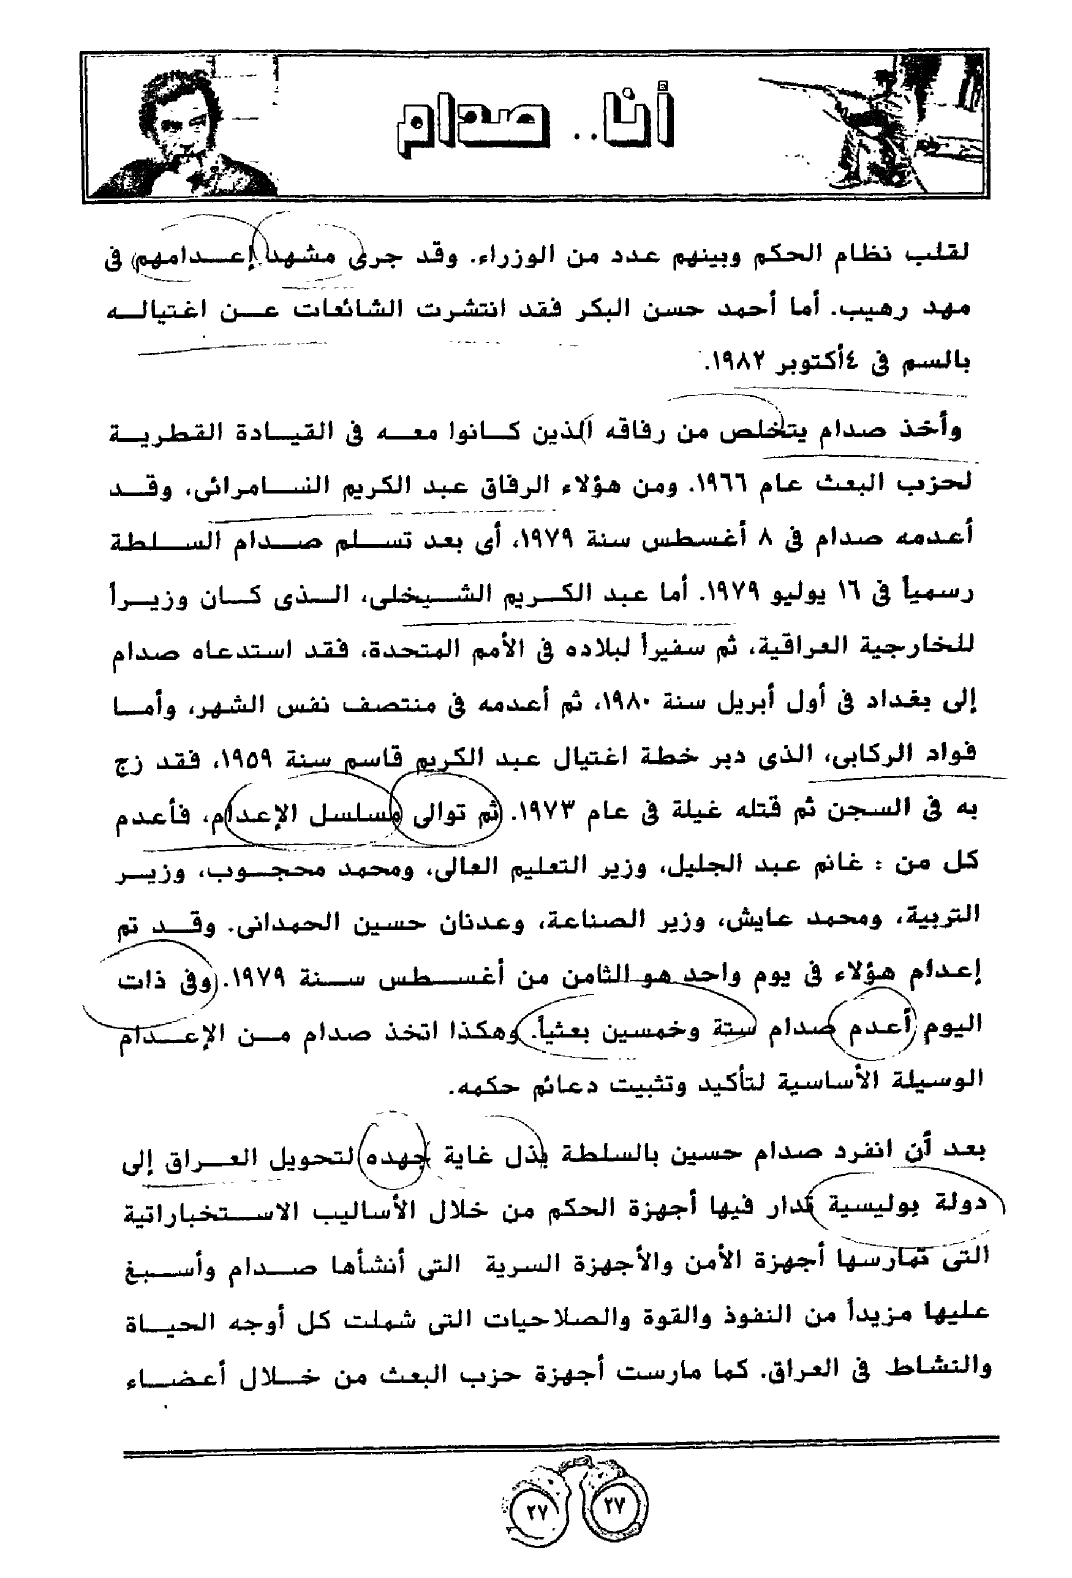 أنا.. صدام
لقلب نظام الحكم وبينهم عدد من الوزراء. وقد جرى مشهد إعـــدامهم فى
مهد رهيب. أما أحمد حسن البكر فقد انتشرت الشائعات عـــن اغتيالـــه
بالسم فى ٤أكتوبر ١٩٨٢.
وأخذ صدام يتخلص من رفاقه الذين كـــانوا معـــه فى القيـــادة القطريـــة
لحزب البعث عام ١٩٦٦. ومن هؤلاء الرفاق عبد الكريم الســـامرائى، وقـــد
أعدمه صدام فى ٨ أغسطس سنة ١٩٧٩، أى بعد تســـلم صـــدام الســـلطة
رسمياً فى ١٦ يوليو ١٩٧٩. أما عبد الكـــريم الشـــيخلى، الـــذى كـــان وزيـــراً
للخارجية العراقية، ثم سفيراً لبلاده فى الأمم المتحدة، فقد استدعاه صدام
إلى بغداد فى أول أبريل سنة ١٩٨٠، ثم أعدمه فى منتصف نفس الشهر، وأمـــا
فواد الركابى، الذى دبر خطة اغتيال عبد الكريم قاسم سنة ١٩٥٩، فقد زج
به فى السجن ثم قتله غيلة فى عام ١٩٧٣. ثم توالى مسلسل الإعدام، فأعدم
كل من : غانم عبد الجليل، وزير التعليم العالى، ومحمد محجـــوب، وزيـــر
التربية، ومحمد عايش، وزير الصناعة، وعدنان حسين الحمدانى. وقـــد تم
إعدام هؤلاء فى يوم واحد هو الثامن من أغســـطس ســـنة ١٩٧٩. وفى ذات
اليوم أعدم صدام ستة وخمسين بعثياً. وهكذا اتخذ صدام مـــن الإعـــدام
الوسيلة الأساسية لتأكيد وتثبيت دعائم حكمه.
بعد أن انفرد صدام حسين بالسلطة بذل غاية جهده لتحويل العـــراق إلى
دولة بوليسية تدار فيها أجهزة الحكم من خلال الأساليب الاســـتخباراتية
التى تمارسها أجهزة الأمن والأجهزة السرية التى أنشأها صـــدام وأســـبغ
عليها مزيداً من النفوذ والقوة والصلاحيات التى شملت كل أوجه الحيـــاة
والنشاط فى العراق. كما مارست أجهزة حزب البعث من خـــلال أعضـــاء
٢٧ ٢٧